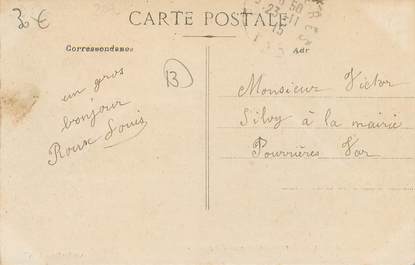 30 €
CARTE POSTALE
Correspondance
Adr
23-11
15
13
un gros
bonjour
Roux Louis
Monsieur Victor
Silvy à la mairie
Pourrières Var